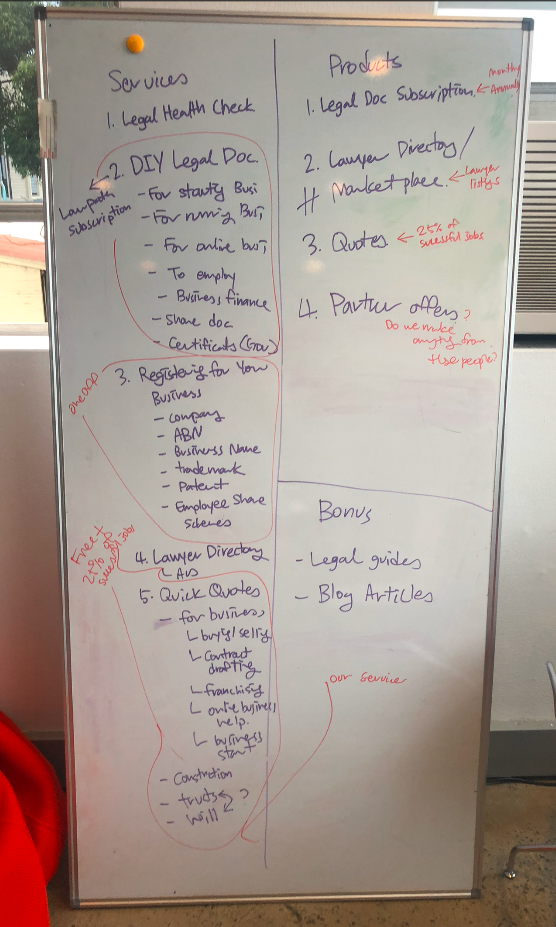 Services
1. Legal Health Check
2. DIY Legal Doc.
Lawpath
subscription
- For starting Busi
- For running Busi
- For online busi
- To employ
- Business finance
- Share doc
- Certificates (Gov)
one app
3. Registering for Your
Business
- company
- ABN
- Business Name
- trademark
- Patent
- Employee Share
Schemes
Free +
25% of
successful jobs
4. Lawyer Directory
5. Quick Quotes
- for business
buying/selling
Contract
drafting
franchising
online business
help.
business
start
- Constrction
- trusts
- Will
?
Products
1. Legal Doc Subscription.
Monthly
Annually
2. Lawyer Directory/
Market place.
Lawyer
listings
3. Quotes
25% of
sucessful jobs
4. Partner offers
?
Do we make
anything from
these people?
Bonus
- Legal guides
- Blog Articles
our service